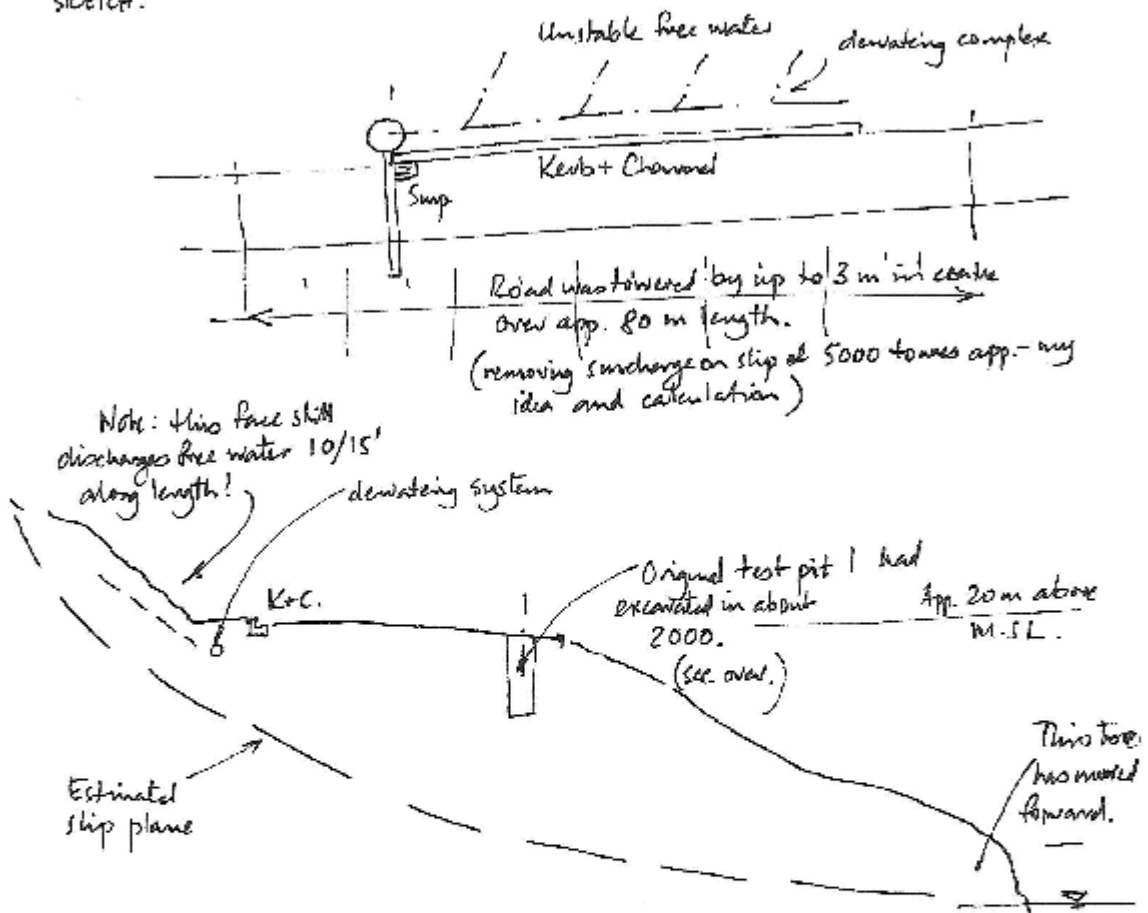 SKETCH.
Unstable free water
dewatering complex
Kerb + Channel
Sump
Road was lowered by up to 3 m in centre
over app. 80 m length.
(removing surcharge on slip of 5000 tonnes app. - my
idea and calculation)
Note: this face still
discharges free water 10/15'
along length!
dewatering system
K+C.
Original test pit I had
excavated in about
2000.
(see over.)
App. 20 m above
M.S.L.
Estimated
slip plane
This toe
has moved
forward.